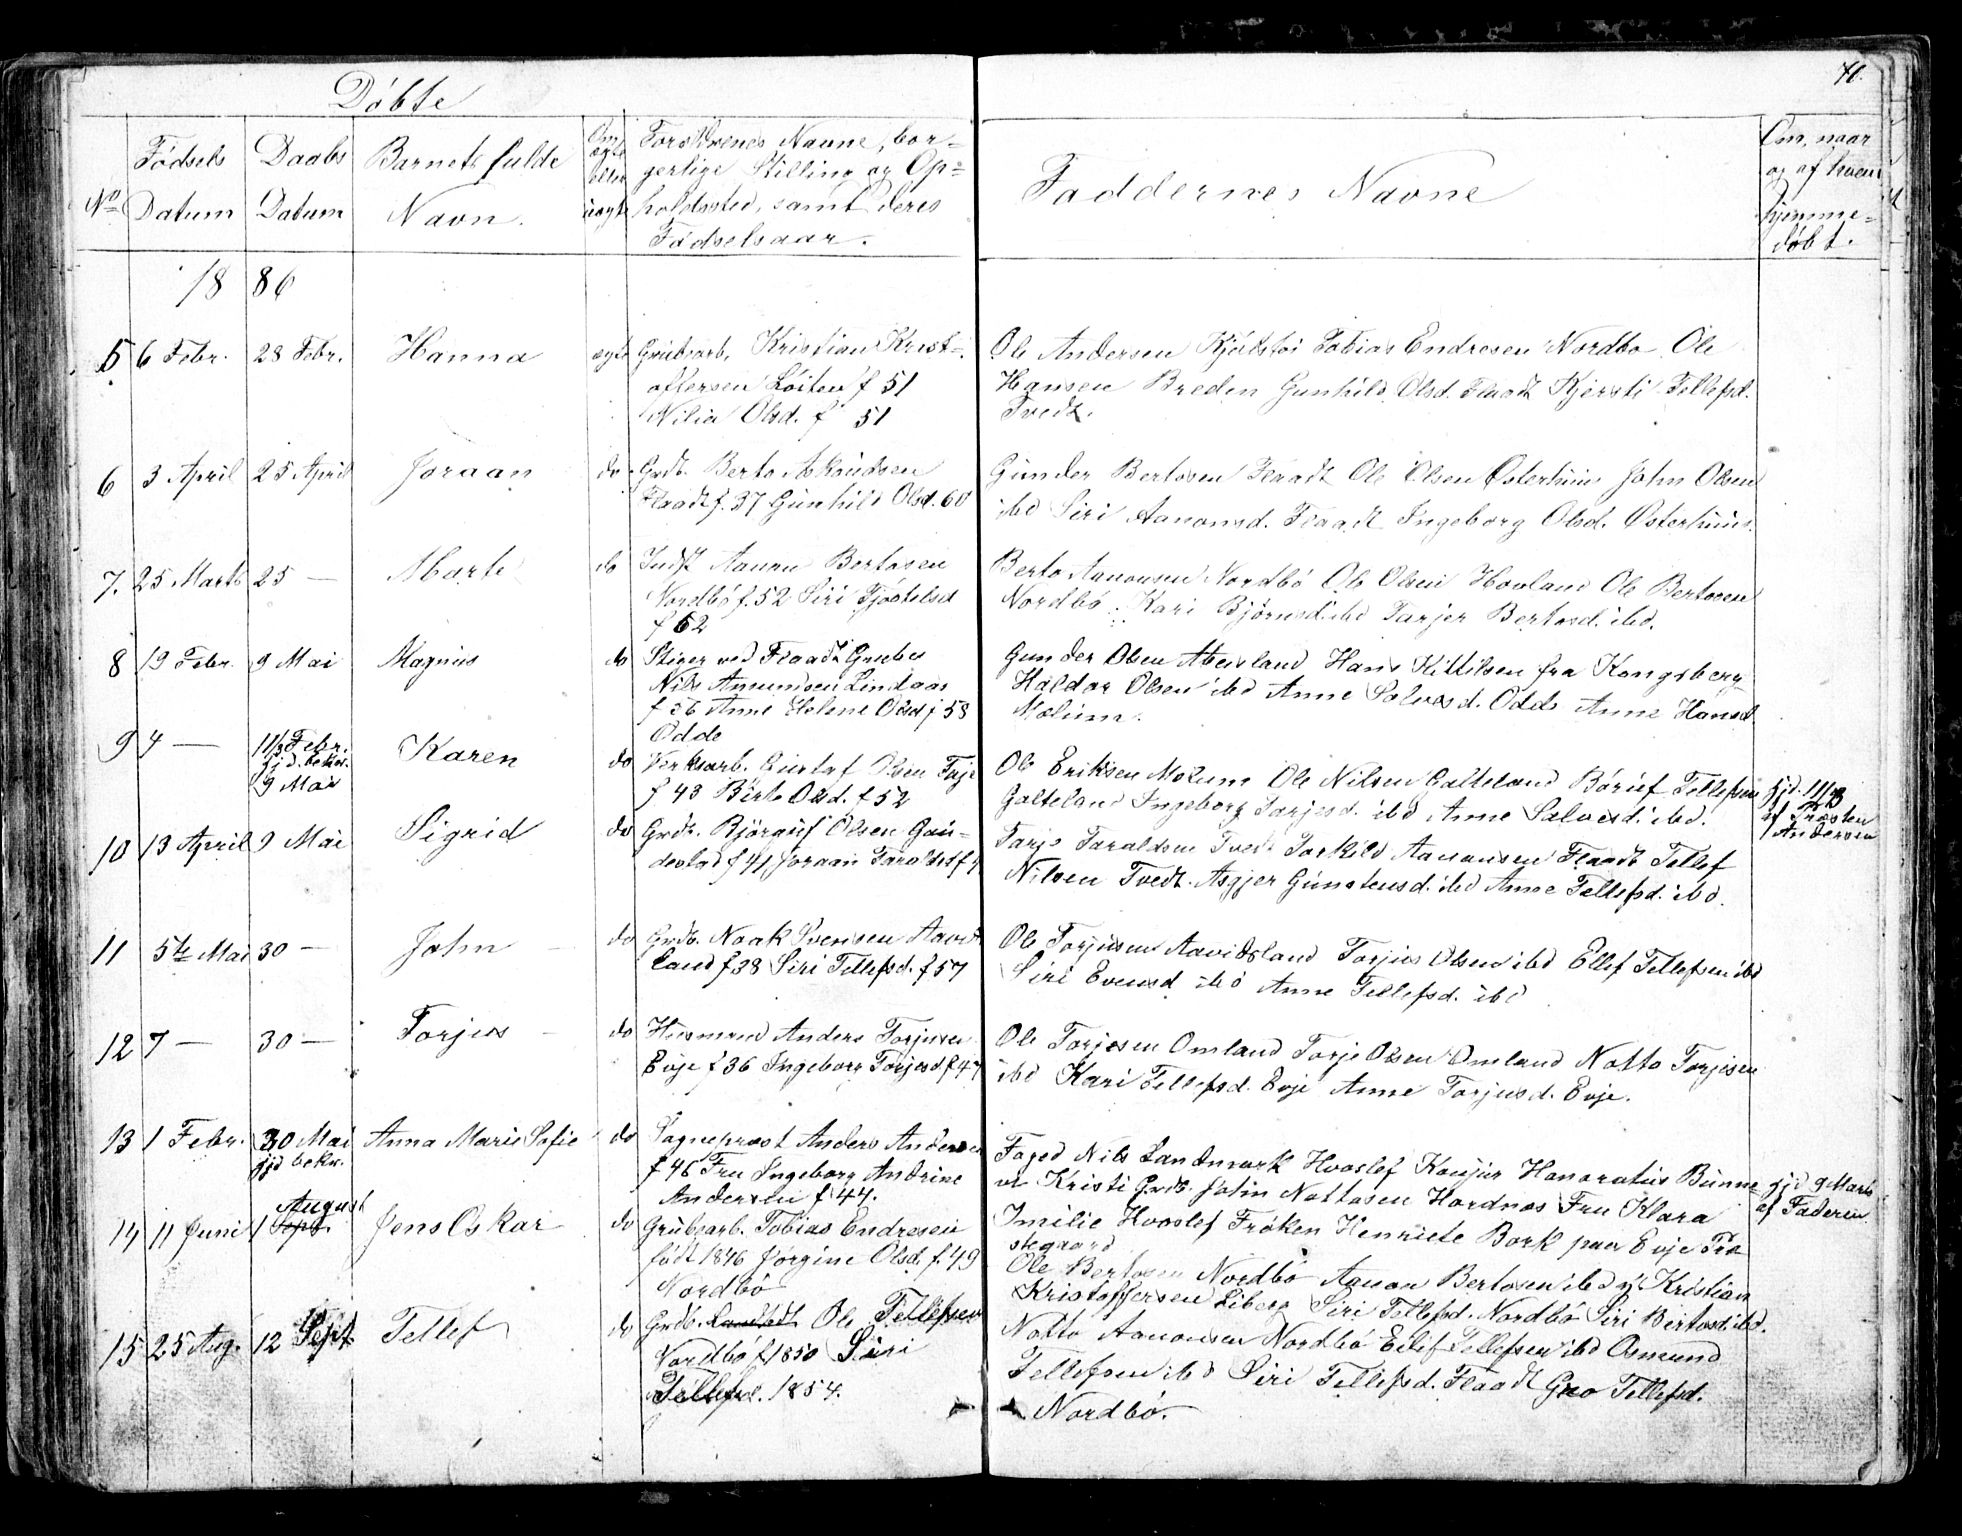 Döbte
71.
Nº
Födsels Datum
Daabs Datum
Barnets fulde Navn.
Om ægte eller uægte
Forældrenes Navne, bor-
gerlige Stilling og Op-
holdssted, samt deres
Fødselsaar.
Faddernes Navne
Om, naar
og af hvem
hjemme-
döbt.
1886
5 6 Febr. 28 Febr. Hanna ægte Grubearb. Kristian Krist-
offersen Löiten f 51
Nilia Olsd. f 51
Ole Andersen Tobias Endresen Nordbo Ole
Hansen Breden Gunhild Olsd. Flaadt Kjersti Tellefsd.
Tvedt.
6 3 April 25 April Joraan do Grdb. Berto Aknudsen
Flaadt f. 37 Gunhild Olsd. 60
Gunder Bertosen Flaadt Ole Olsen Østerhuus John Olsen
ibd Siri Aanonsd. Flaadt Ingeborg Olsd. Østerhuus.
7. 25 Marts 25 — Marte do Indst Aanon Bertosen
Nordbö f. 52 Siri Tjöstelsd
f 62
Berto Aanonsen Nordbö Ole Olsen Hovland Ole Bertosen
Nordbö Kari Björnsd. ibd Tarjer Bertosd. ibd.
8 19 Febr. 9 Mai Magnus do Stiger ved Flaadt Gruber
Nils Amundsen Lindaas
f 56 Anne Helene Olsd f 58
Odde
Gunder Olsen Abusland Hans Kittilsen fra Kongsberg
Haldor Olsen ibd Anne Salvesd. Odde Anne Hansd.
Mølum.
9 4 — 11/3 Febr.
hjd. bekr.
9 Mai
Karen do Verksarb. Gustaf Olsen Evje
f 43 Birte Olsd. f 52
Ole Eriksen Mølum Ole Nilsen Galteland Böruf Tellefsen
Galteland Ingeborg Tarjesd. ibd Anne Salvesd. ibd.
hjd. 11/3
af Præsten
Andersen
10 13 April 9 Mai Sigrid do Grdb. Björguf Olsen Gau-
destad f 41, Joraan Taraldsd f 4
Tarje Taraldsen Tvedt Torkild Aanonsen Flaadt Tellef
Nilsen Tvedt. Asgjer Gunstensd. ibd Anne Tellefsd. ibd.
11 5te Mai 30 — John do Grdb. Noak Svensen Aavids
land f 38 Siri Tellefsd. f 57
Ole Torjusen Aavidsland Torjus Olsen ibd Ellef Tellefsen ibd
Siri Evensd ibd Anne Tellefsd. ibd
12 7 — 30 — Torjus do Husmand Anders Torjusen
Evje f 36 Ingeborg Torjesd f 47
Ole Torjesen Omland Torje Olsen Omland Notto Torjesen
ibd Kari Tellefsd. Evje Anne Torjusd. Evje.
13 1 Febr. 30 Mai
hjd bekr.
Anna Marie Sofie do Sogneprest Anders Andersen
f 46 Fru Ingeborg Andrine
Andersen f 44.
Foged Nils Landmark Hvoslef Honoratus Bonne-
vi Kristi Grdb. John Nottosen Hordnes Fru Klara
Imilie Hvoslef Fröken Henriete Bork paa Evje Præ
stegaard
hjd 9 Marts
af Faderen
14 11 Juni 1 August Jens Oskar do Grubearb. Tobias Endresen
født 1846 Jörgine Olsd. f. 49
Nordbö
Ole Bertosen Nordbö Aanon Bertosen ibd og Kristian
Kristoffersen Liberg Siri Tellefsd. Nordbö Siri Bertosd. ibd.
15 25 Aug. 12 Sept Tellef do Grdb. Ole Tellefsen
Nordbö f. 1850 Siri
Tellefsd. 1854.
Notto Aanonsen Nordbö Eilef Tellefsen ibd Osmund
Tellefsen ibd Siri Tellefsd. Flaadt Gro Tellefsd.
Nordbö.